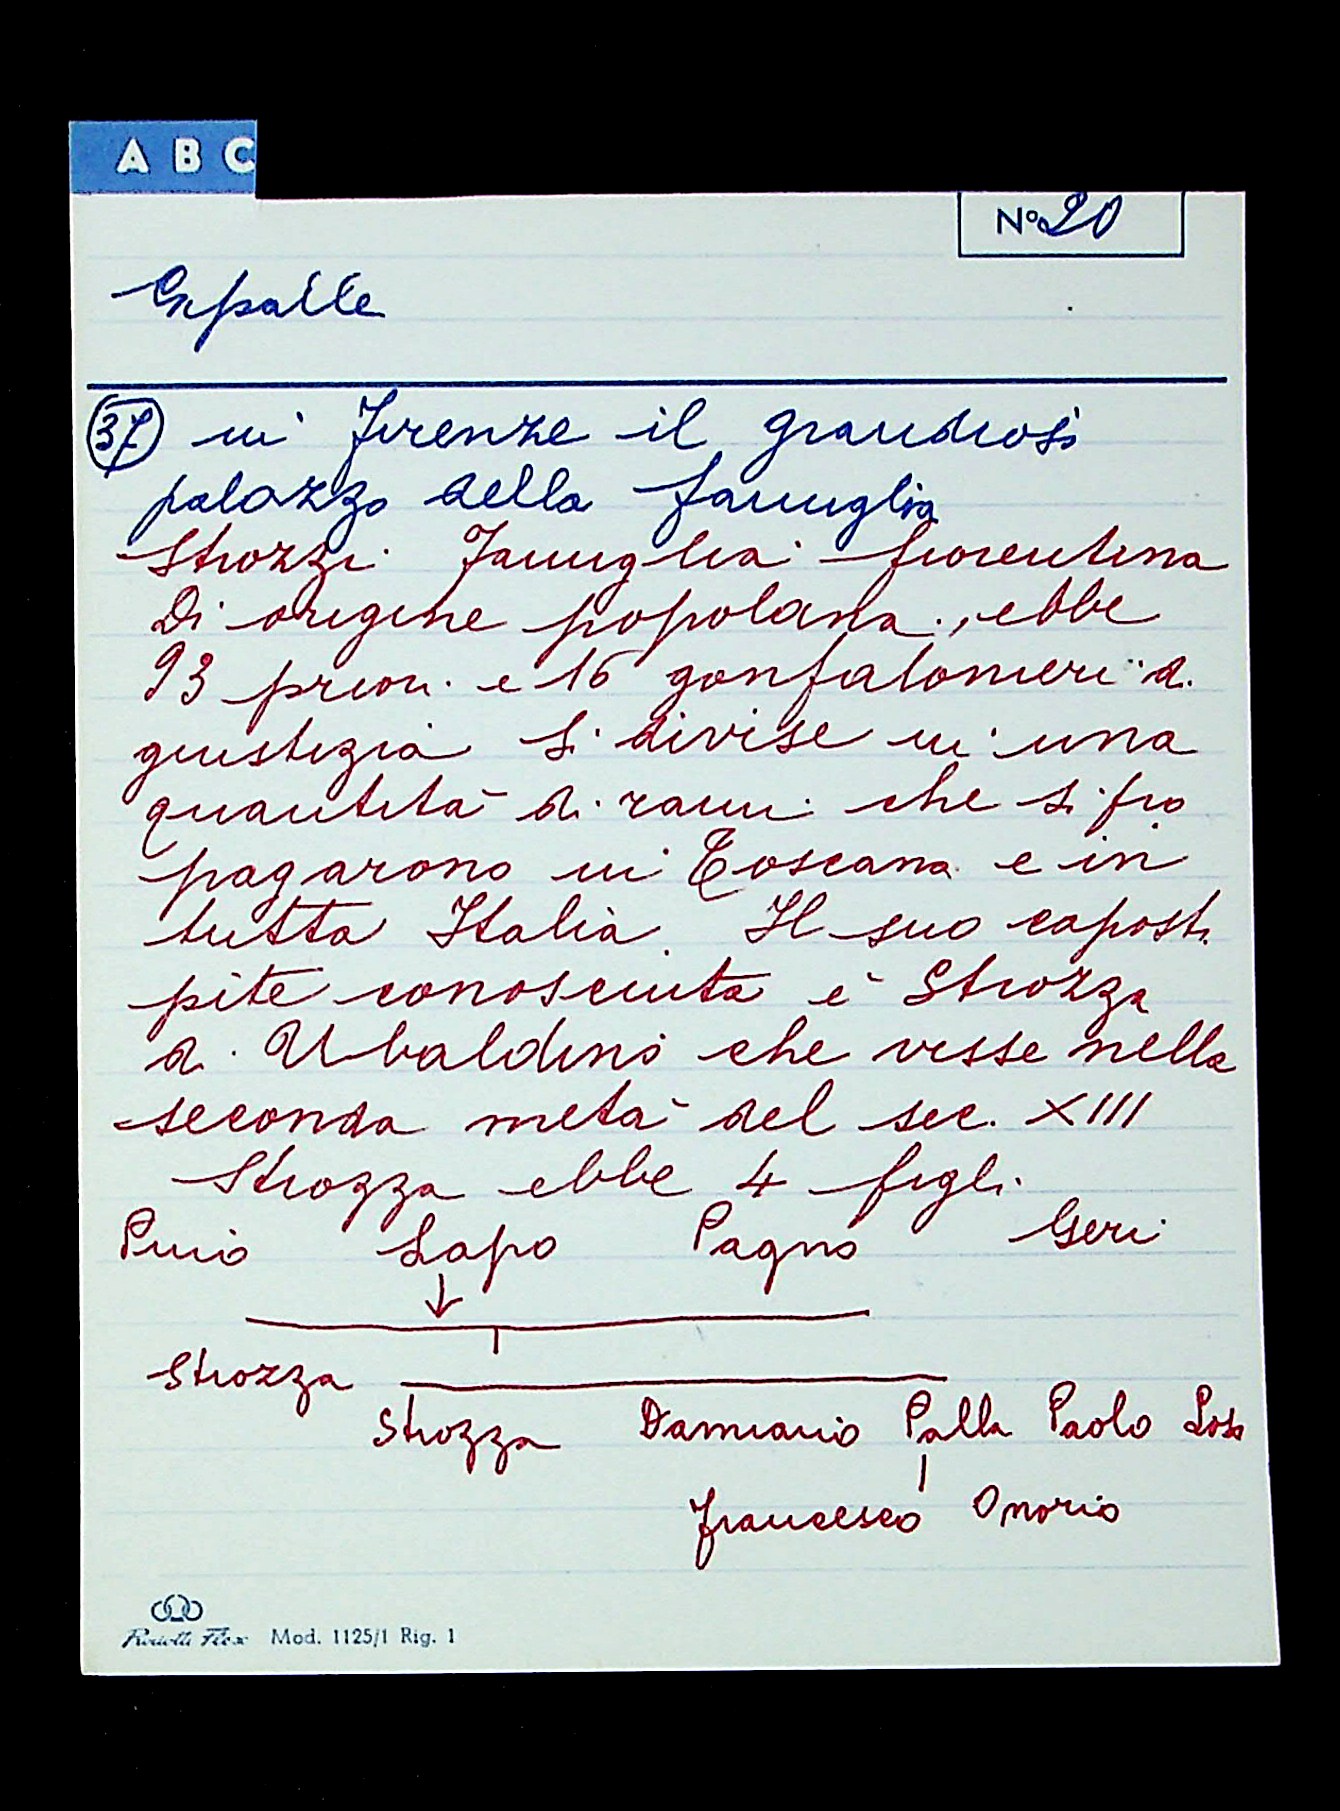 A B C
N° 20
37 in Firenze il grandioso
palazzo della famiglia
Strozzi. Famiglia fiorentina
di origine popolana, ebbe
93 priori e 16 gonfalonieri di
giustizia si divise in una
quantità di rami che si pro
pagarono in Toscana e in
tutta Italia. Il suo caposti
pite conosciuta è Strozza
di Ubaldino che visse nella
seconda metà del sec. XIII
Strozza ebbe 4 figli
Pinio Lapo Pagno Geri
Strozza
Strozza Damiano Palla Paolo
Francesco Onorio
Mod. 1125/1 Rig. 1